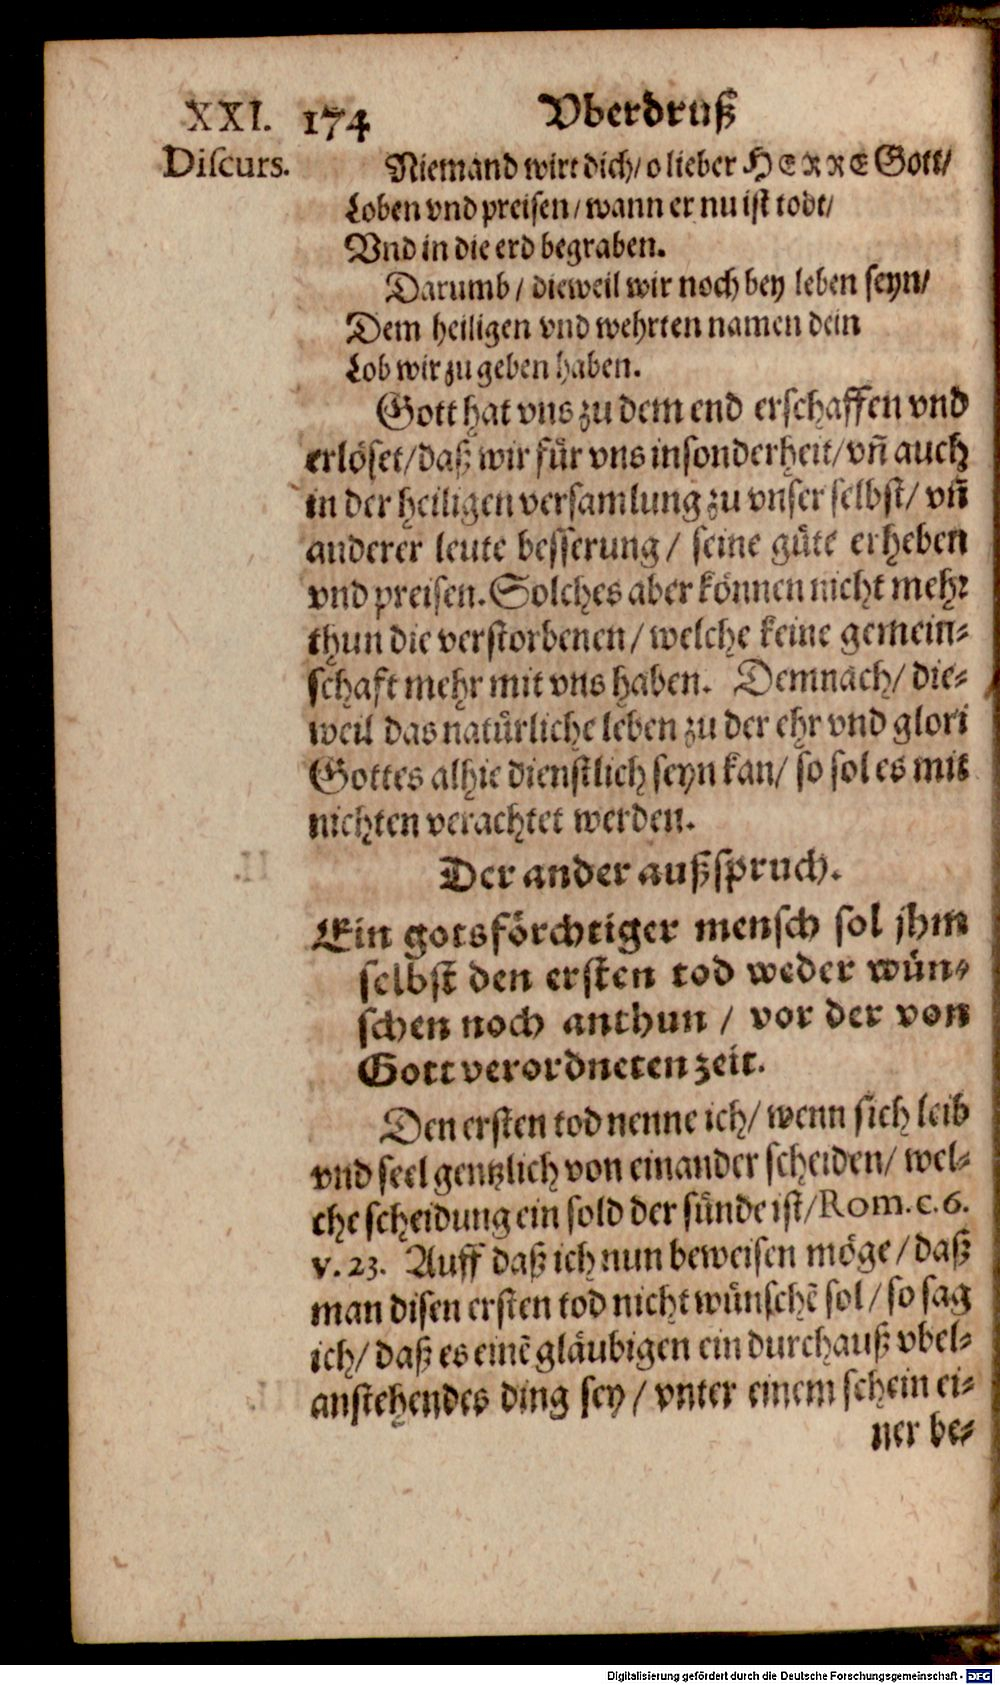 XXI. 174 Vberdruß
Discurs.
Niemand wirt dich/ o lieber HERRE Gott/
Loben vnd preisen/ wann er nu ist todt/
Vnd in die erd begraben.
Darumb/ dieweil wir noch bey leben seyn/
Dem heiligen vnd wehrten namen dein
Lob wir zu geben haben.
Gott hat vns zu dem end erschaffen vnd
erlöset/ daß wir für vns insonderheit/ vn̄ auch
in der heiligen versamlung zu vnser selbst/ vn̄
anderer leute besserung/ seine güte erheben
vnd preisen. Solches aber können nicht mehr
thun die verstorbenen/ welche keine gemein-
schaft mehr mit vns haben. Demnach/ die-
weil das natürliche leben zu der ehr vnd glori
Gottes alhie dienstlich seyn kan/ so sol es mit
nichten verachtet werden.
Der ander außspruch.
Ein gotsförchtiger mensch sol jhm
selbst den ersten tod weder wün-
schen noch anthun / vor der von
Gott verordneten zeit.
Den ersten tod nenne ich/ wenn sich leib
vnd seel gentzlich von einander scheiden/ wel-
che scheidung ein sold der sünde ist/ Rom. c. 6.
v. 23. Auff daß ich nun beweisen möge/ daß
man disen ersten tod nicht wünschē sol/ so sag
ich/ daß es einē gläubigen ein durchauß vbel-
anstehendes ding sey/ vnter einem schein ei-
ner be-
Digitalisierung gefördert durch die Deutsche Forschungsgemeinschaft - DFG